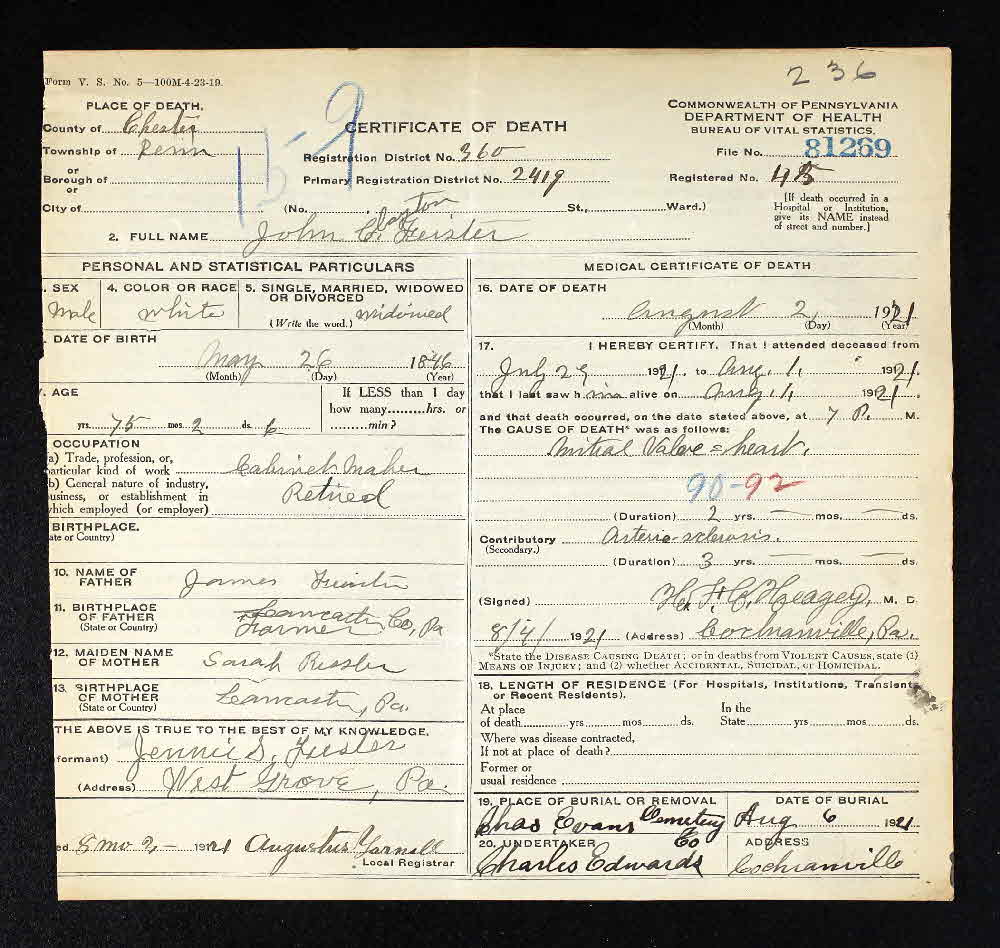 236
Form V. S. No. 5—100M-4-23-19.
PLACE OF DEATH.
County of Chester
Township of Penn
or
Borough of
or
City of
CERTIFICATE OF DEATH
Registration District No. 360
Primary Registration District No. 2419
(No. St., Ward.)
COMMONWEALTH OF PENNSYLVANIA
DEPARTMENT OF HEALTH
BUREAU OF VITAL STATISTICS.
File No. 81269
Registered No. 45
[If death occurred in a
Hospital or Institution,
give its NAME instead
of street and number.]
2. FULL NAME John Clayton Feister
PERSONAL AND STATISTICAL PARTICULARS
. SEX
Male
4. COLOR OR RACE
white
5. SINGLE, MARRIED, WIDOWED
OR DIVORCED
(Write the word.) Widowed
. DATE OF BIRTH
May 26 1846
(Month) (Day) (Year)
. AGE
yrs. 75 mos. 2 ds. 6
If LESS than 1 day
how many hrs. or
min?
OCCUPATION
a) Trade, profession, or,
particular kind of work Cabinet Maker
b) General nature of industry,
business, or establishment in
which employed (or employer) Retired
BIRTHPLACE.
ate or Country)
10. NAME OF
FATHER James Feister
11. BIRTHPLACE
OF FATHER
(State or Country) Lancaster Co, Pa
Farmer
12. MAIDEN NAME
OF MOTHER Sarah Ressler
13. BIRTHPLACE
OF MOTHER
(State or Country) Lancaster, Pa.
THE ABOVE IS TRUE TO THE BEST OF MY KNOWLEDGE.
formant) Jennie S. Feister
(Address) West Grove, Pa.
ed 8 mo 2 - 1921 Augustus Yarnall
Local Registrar
MEDICAL CERTIFICATE OF DEATH
16. DATE OF DEATH
August 2, 1921
(Month) (Day) (Year)
17. I HEREBY CERTIFY, That I attended deceased from
July 29 1921, to Aug. 1, 1921.
that I last saw him alive on Aug. 1, 1921.
and that death occurred, on the date stated above, at 7 P. M.
The CAUSE OF DEATH* was as follows:
Mitral Valve = heart.
90-92
(Duration) 2 yrs. — mos. — ds.
Contributory Arterio-sclerosis.
(Secondary.)
(Duration) 3 yrs. — mos. — ds.
(Signed) H. F. C. Heagey, M. D.
8/4/ 1921 (Address) Cochranville, Pa.
*State the DISEASE CAUSING DEATH; or in deaths from VIOLENT CAUSES, state (1)
MEANS OF INJURY; and (2) whether ACCIDENTAL, SUICIDAL, or HOMICIDAL.
18. LENGTH OF RESIDENCE (For Hospitals, Institutions, Transients
or Recent Residents).
At place
of death yrs mos ds.
In the
State yrs mos ds.
Where was disease contracted,
If not at place of death?
Former or
usual residence
19. PLACE OF BURIAL OR REMOVAL
Chas Evans Cemetery
DATE OF BURIAL
Aug 6 1921
20. UNDERTAKER
Charles Edwards Co
ADDRESS
Cochranville